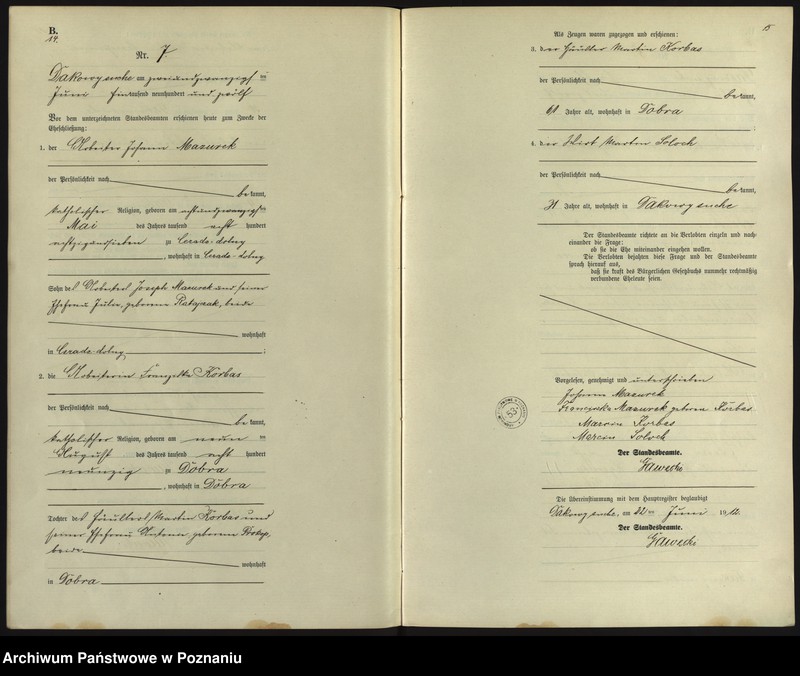 B.
14.
Nr. 7
Dakowy suche am zweiundzwanzigs ten
Juni Eintausend neunhundert und zwölf
Vor dem unterzeichneten Standesbeamten erschienen heute zum Zwecke der
Eheschließung:
1. der Arbeiter Johann Mazurek
der Persönlichkeit nach
be kannt,
katholischer Religion, geboren am achtundzwanzigs ten
Mai des Jahres tausend acht hundert
achtzigundsieben zu Cerade-dolny
, wohnhaft in Cerade-dolny
Sohn des Arbeiters Joseph Mazurek und seiner
Ehefrau Julie, geborene Ratajczak, beide
wohnhaft
in Cerade-dolny ;
2. die Arbeiterin Franziska Korbas
der Persönlichkeit nach
be kannt,
katholischer Religion, geboren am neun ten
August des Jahres tausend acht hundert
neunzig zu Dobra
, wohnhaft in Dobra
Tochter des Häuslers Martin Korbas und
seiner Ehefrau Antonie geborene Prokop,
beide
wohnhaft
in Dobra
15
Als Zeugen waren zugezogen und erschienen:
3. der Häusler Martin Korbas
der Persönlichkeit nach
be kannt,
61 Jahre alt, wohnhaft in Dobra
4. der Wirt Martin Soloch
der Persönlichkeit nach
be kannt,
31 Jahre alt, wohnhaft in Dakowy suche
Der Standesbeamte richtete an die Verlobten einzeln und nach-
einander die Frage:
ob sie die Ehe miteinander eingehen wollen.
Die Verlobten bejahten diese Frage und der Standesbeamte
sprach hierauf aus,
daß sie kraft des Bürgerlichen Gesetzbuchs nunmehr rechtmäßig
verbundene Eheleute seien.
Vorgelesen, genehmigt und unterschrieben
Johann Mazurek
Franciszka Mazurek geboren Korbas
Marcin Korbas
Marcin Soloch
Der Standesbeamte.
Gawecki
Die Übereinstimmung mit dem Hauptregister beglaubigt
Dakowy suche, am 22ten Juni 1912.
Der Standesbeamte.
Gawecki
53
Archiwum Państwowe w Poznaniu